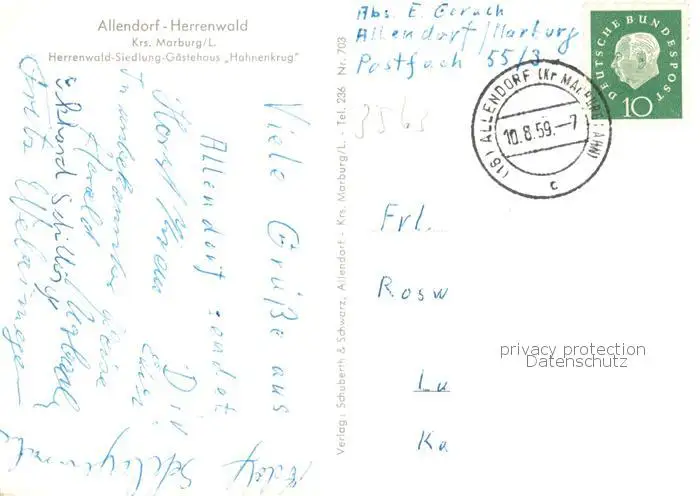 Allendorf - Herrenwald
Krs. Marburg/L.
Herrenwald-Siedlung-Gästehaus „Hahnenkrug"
Viele Grüße aus
Allendorf sendet
Dir
Horst
In unbekannter Weise
Harald
Ekkard Schilling
Fritz
Verlag: Schuberth & Schwarz, Allendorf - Krs. Marburg/L. - Tel. 236 Nr. 703
Abs. E. Gerach
Allendorf/Marburg
Postfach 55/3
3563
DEUTSCHE BUNDESPOST
10
(16) ALLENDORF (Kr MARBURG LAHN)
10.8.59.-7
c
Frl.
Rosw
Lu
Ka
privacy protection
Datenschutz